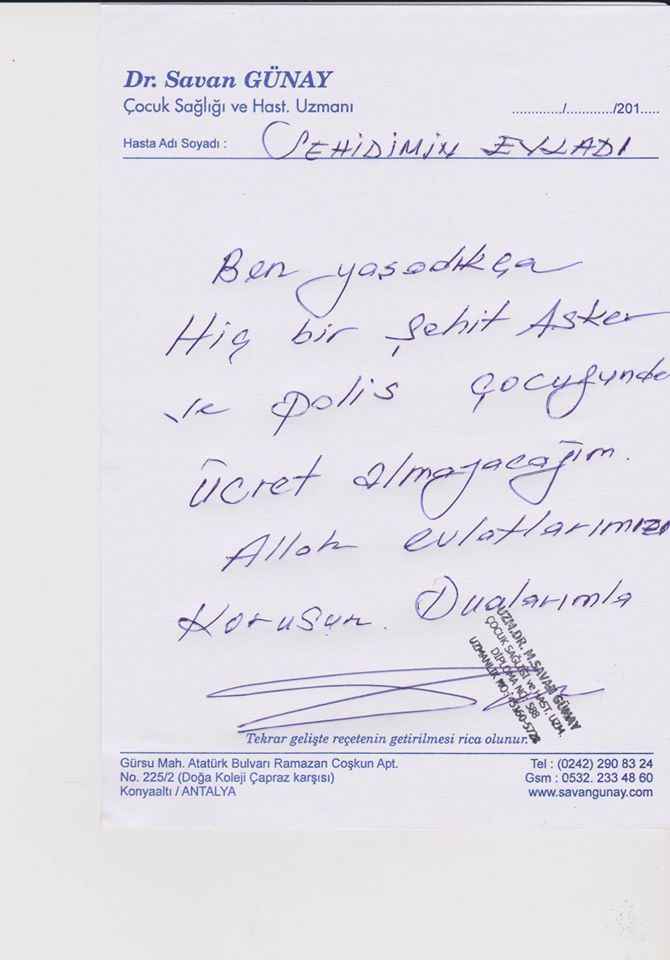 Dr. Savan GÜNAY
Çocuk Sağlığı ve Hast. Uzmanı
............/............/201.....
Hasta Adı Soyadı : ŞEHİDİMİN EVLADI
Ben yaşadıkça
Hiç bir şehit Asker
ve polis çocuğunda
Ücret almayacağım.
Allah evlatlarımızı
Korusun. Dualarımla
UZM.DR. M.SAVAN GÜNAY
ÇOCUK SAĞLIĞI ve HAST. UZM.
DİPLOMA NO: 588
UZMANLIK NO:
Tekrar gelişte reçetenin getirilmesi rica olunur.
Gürsu Mah. Atatürk Bulvarı Ramazan Coşkun Apt.
No. 225/2 (Doğa Koleji Çapraz karşısı)
Konyaaltı / ANTALYA
Tel : (0242) 290 83 24
Gsm : 0532. 233 48 60
www.savangunay.com